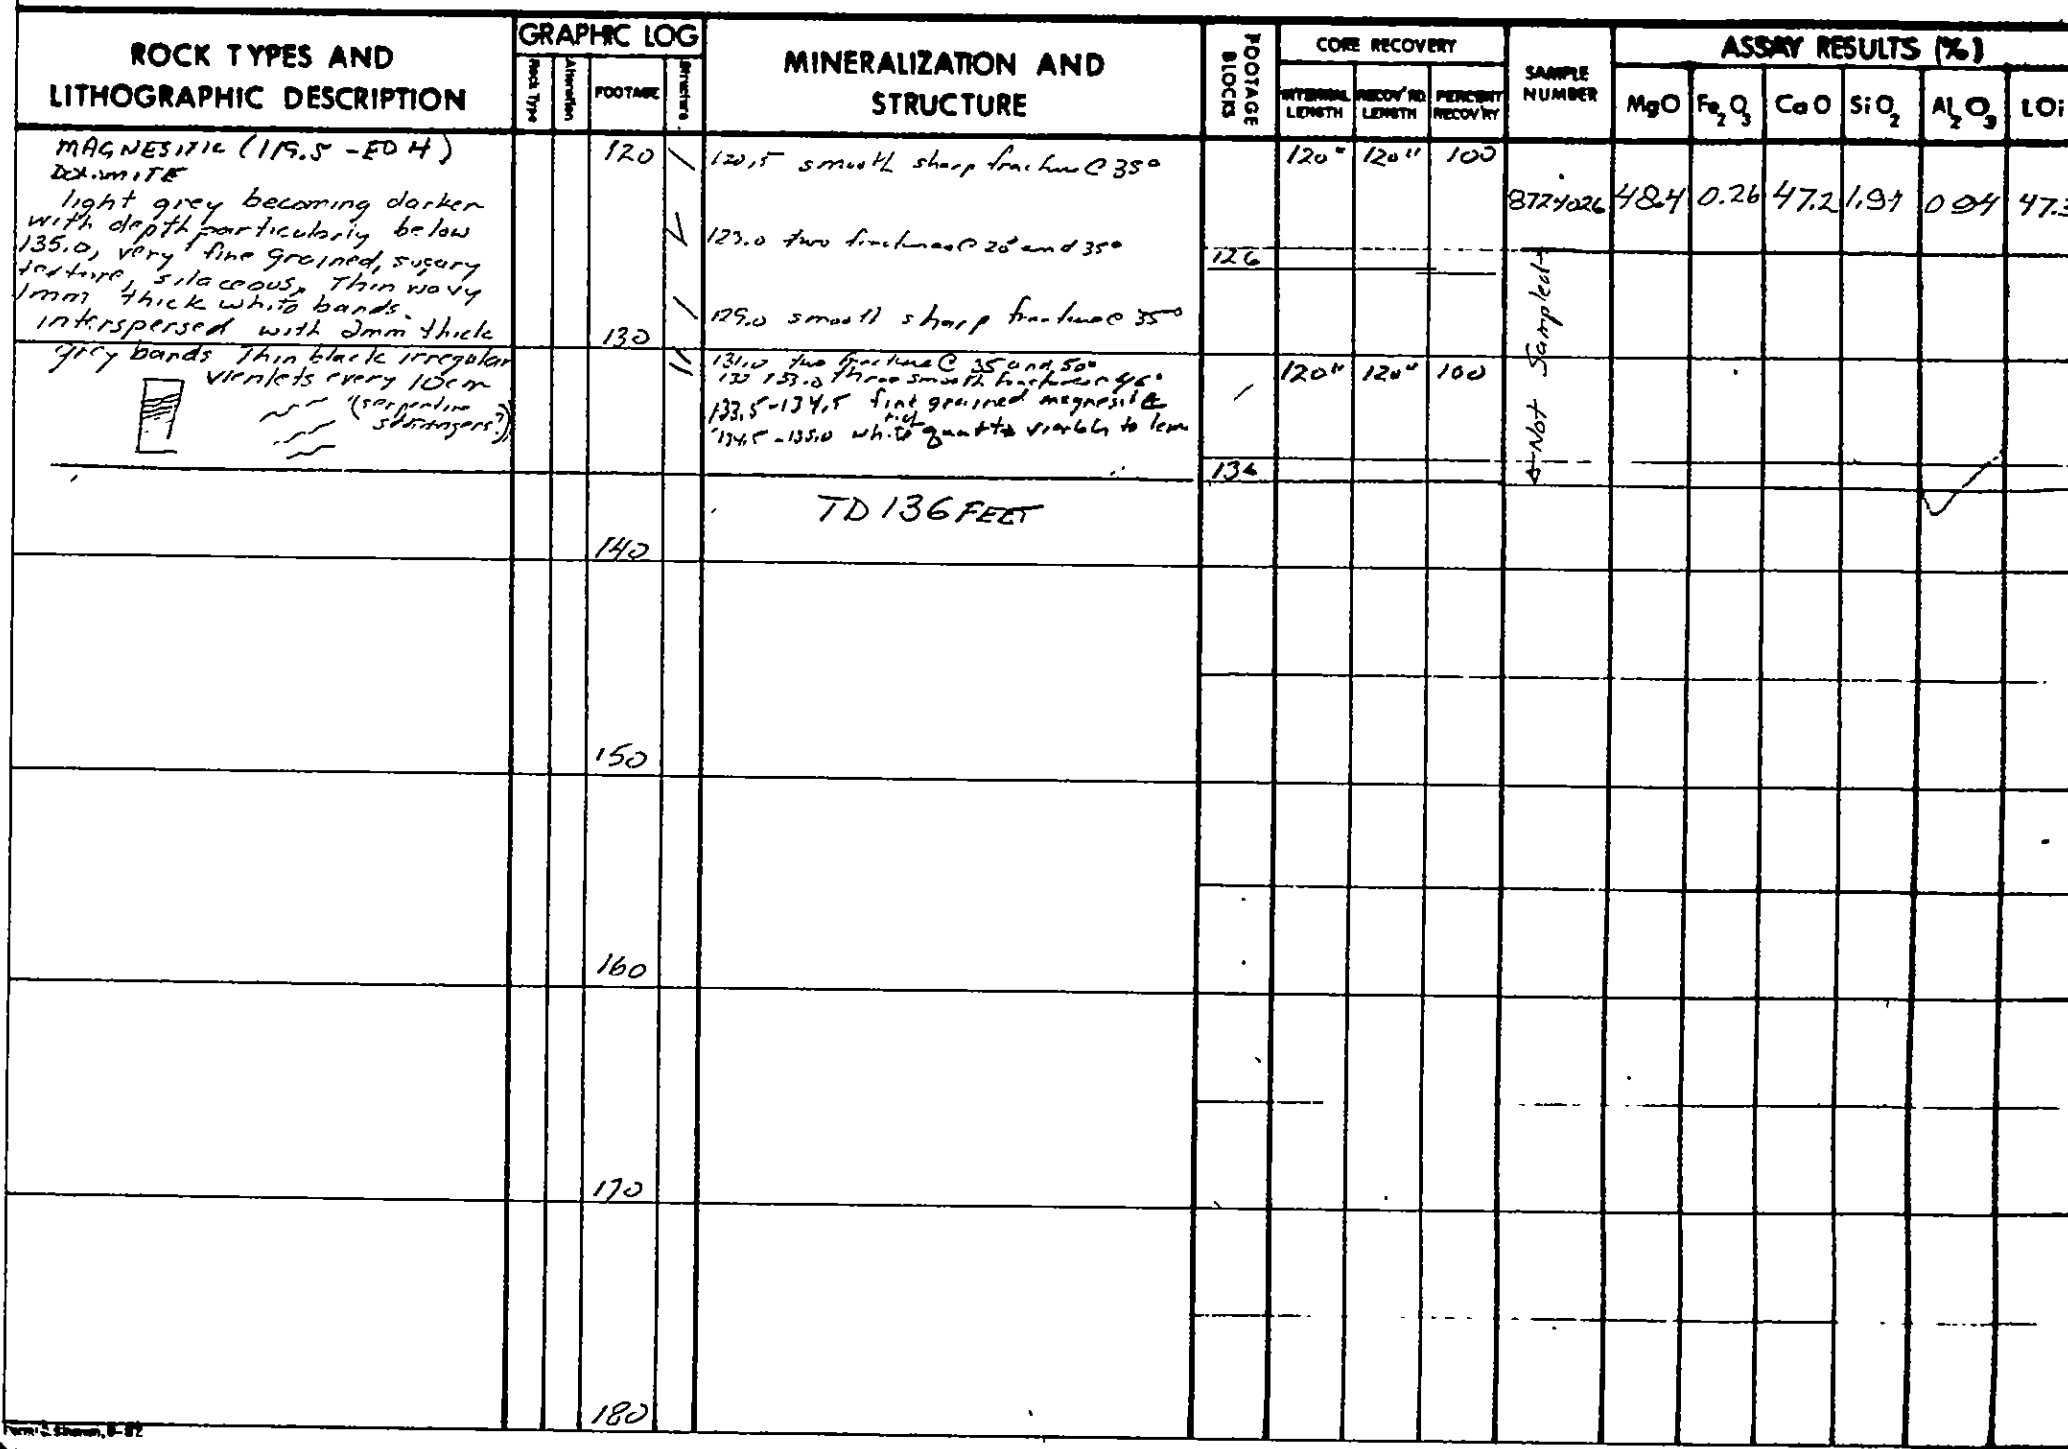 ROCK TYPES AND
LITHOGRAPHIC DESCRIPTION
GRAPHIC LOG
Rock Type
Alteration
FOOTAGE
Structure
MINERALIZATION AND
STRUCTURE
FOOTAGE
BLOCKS
CORE RECOVERY
INTERVAL
LENGTH
RECOV'RD
LENGTH
PERCENT
RECOV'RY
SAMPLE
NUMBER
ASSAY RESULTS (%)
MgO
Fe₂O₃
CaO
SiO₂
Al₂O₃
LOi
MAGNESITIC (119.5 - EOH)
DOLOMITE
light grey becoming darker
with depth particularly below
135.0, very fine grained, sugary
texture, silaceous, Thin wavy
1mm thick white bands.
interspersed with 2mm thick
grey bands Thin black irregular
vienlets every 10cm
(serpentine
stringers?)
120
130
140
150
160
170
180
120.5 smooth sharp fracture @ 35°
123.0 two fractures @ 20° and 35°
129.0 smooth sharp fracture @ 35°
131.0 two fracture @ 35 and 50°
133.0 three smooth fractures 45°
133.5-134.5 fine grained magnesite
134.5-135.0 white quartz vienlets to 1cm
TD 136 FEET
126
136
120" 120" 100
120" 120" 100
8724026 48.4 0.26 47.2 1.97 0.94 47.3
Not Sampled